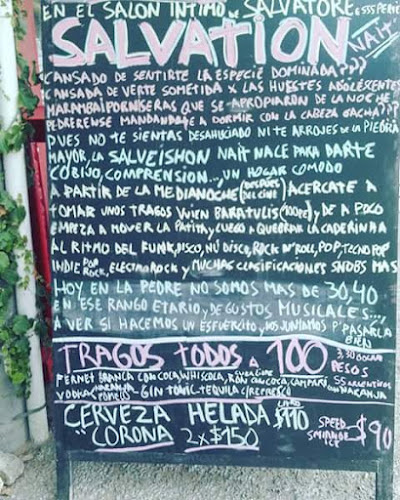 EN EL SALON INTIMO DE SALVATORE
SALVATION
NAIT
¿CANSADO DE SENTIRTE LA ESPECIE DOMINADA???
¿CANSADA DE VERTE SOMETIDA X LAS HUESTES ADOLESCENTES
QUE SE APROPIARON DE LA NOCHE
PEDRERENSE MANDANDOTE A DORMIR CON LA CABEZA GACHA???
PUES NO TE SIENTAS DESAHUCIADO NI TE ARROJES DE LA PIEDRA
MAYOR, LA SALVEISHON NAIT NACE PARA DARTE
COBIJO, COMPRENSION... UN HOGAR COMODO
A PARTIR DE LA MEDIANOCHE (DESPUÉS DEL CINE) ACERCATE A
TOMAR UNOS TRAGOS VIEN BARATULIS (100 PE) Y DE A POCO
EMPEZA A MOVER LA PATITA Y LUEGO A QUEBRAR LA CADERINHA
AL RITMO DEL FUNK, DISCO, NU DISCO, ROCK N' ROLL, POP, TECNO POP
INDIE POP ROCK, ELECTROROCK Y MUCHAS CLASIFICACIONES SNOBS MAS
HOY EN LA PEDRE NO SOMOS MAS DE 30, 40
EN ESE RANGO ETARIO Y DE GUSTOS MUSICALES...
A VER SI HACEMOS UN ESFUERCITO Y NOS JUNTAMOS P' PASARLA
BIEN
TRAGOS TODOS A 100 PESOS
FERNET BRANCA CON COLA, WHISCOLA, RON CON COCA, CAMPARI CON NARANJA
VODKA NARANJA POMELO - GIN TONIC - TEQUILA
CERVEZA HELADA $110
CORONA 2x$150
SPEED
SMIRNOFF
ICE
$90